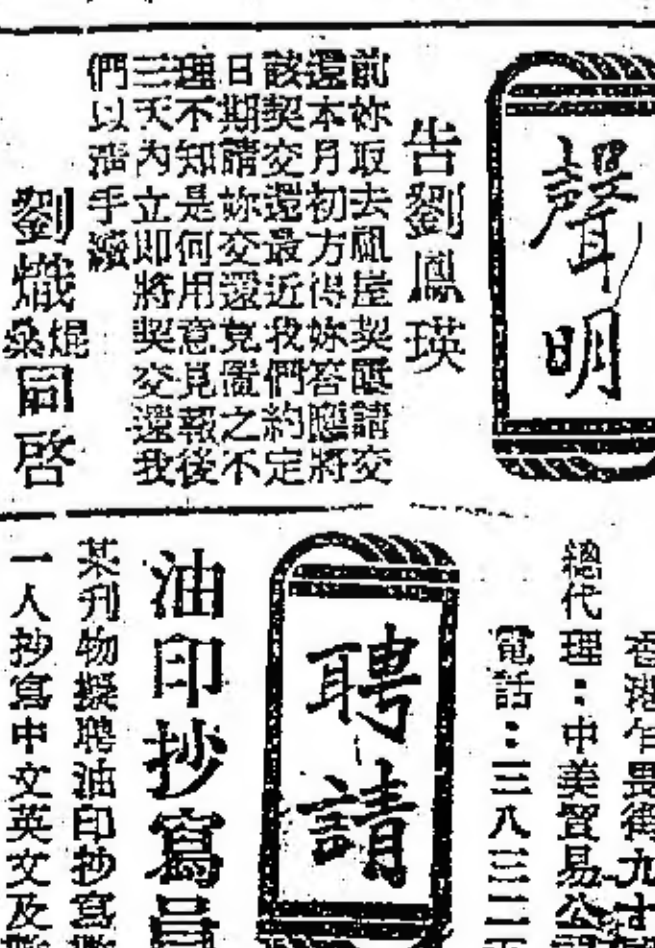 聲明
告劉鳳瑛
前妳取去鳳屋契匯請交
還本月初方得妳答應將
該契交還最近我們約定
日期請妳交還竟置之不
理不知是何用意見報後
三天內立即將契交還我
們以清手續
劉熾焜
燊同啓
總代理：中美貿易公司
電話：三八三二
聘請
油印抄寫員
某刊物擬聘油印抄寫
一人抄寫中文英文及